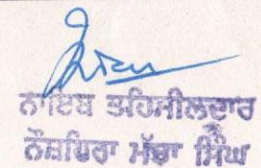 ਨਾਇਬ ਤਹਿਸੀਲਦਾਰ
ਨੌਸ਼ਹਿਰਾ ਮੱਝਾ ਸਿੰਘ